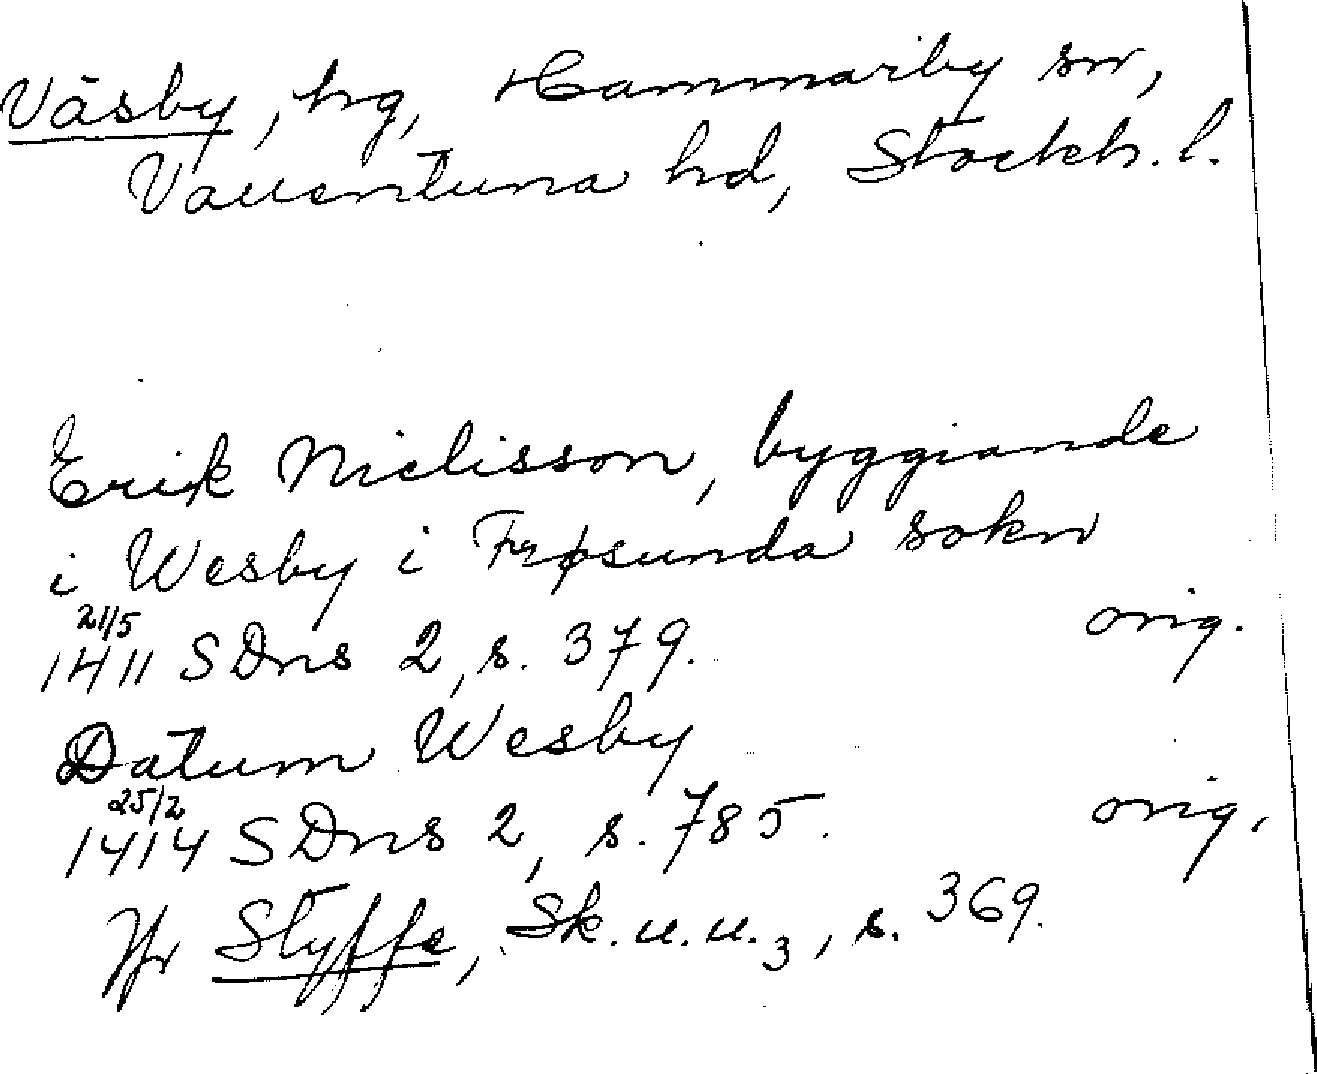 Väsby, hg, Hammarby sn,
Vallentuna hd, Stockh. l.
Erik Niclisson, byggiande
i Wesby i Frøsunda sokn
21/5
1411 SDns 2, s. 379. orig.
Datum Wesby
25/2
1414 SDns 2, s. 785. orig.
Jfr Styffe, Sk. u. u. 3, s. 369.